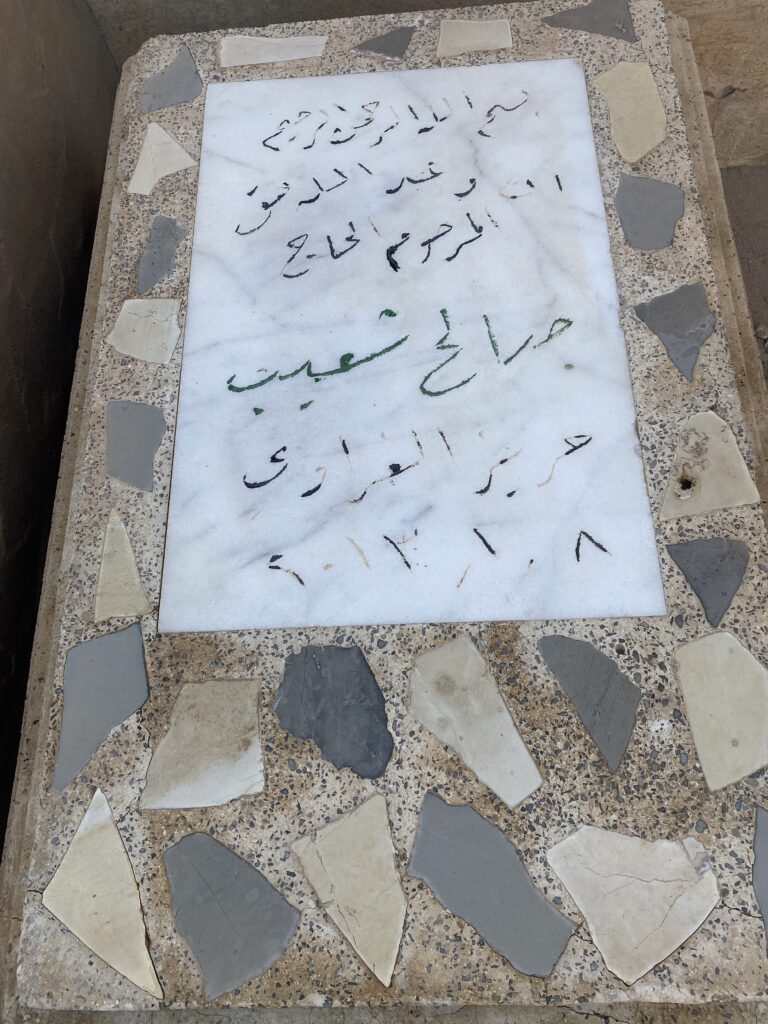 بسم الله الرحمن الرحيم
ان وعد الله حق
المرحوم الحاج
صالح شعيب
حريز الغراوي
٢٠١٣/١٠/٨